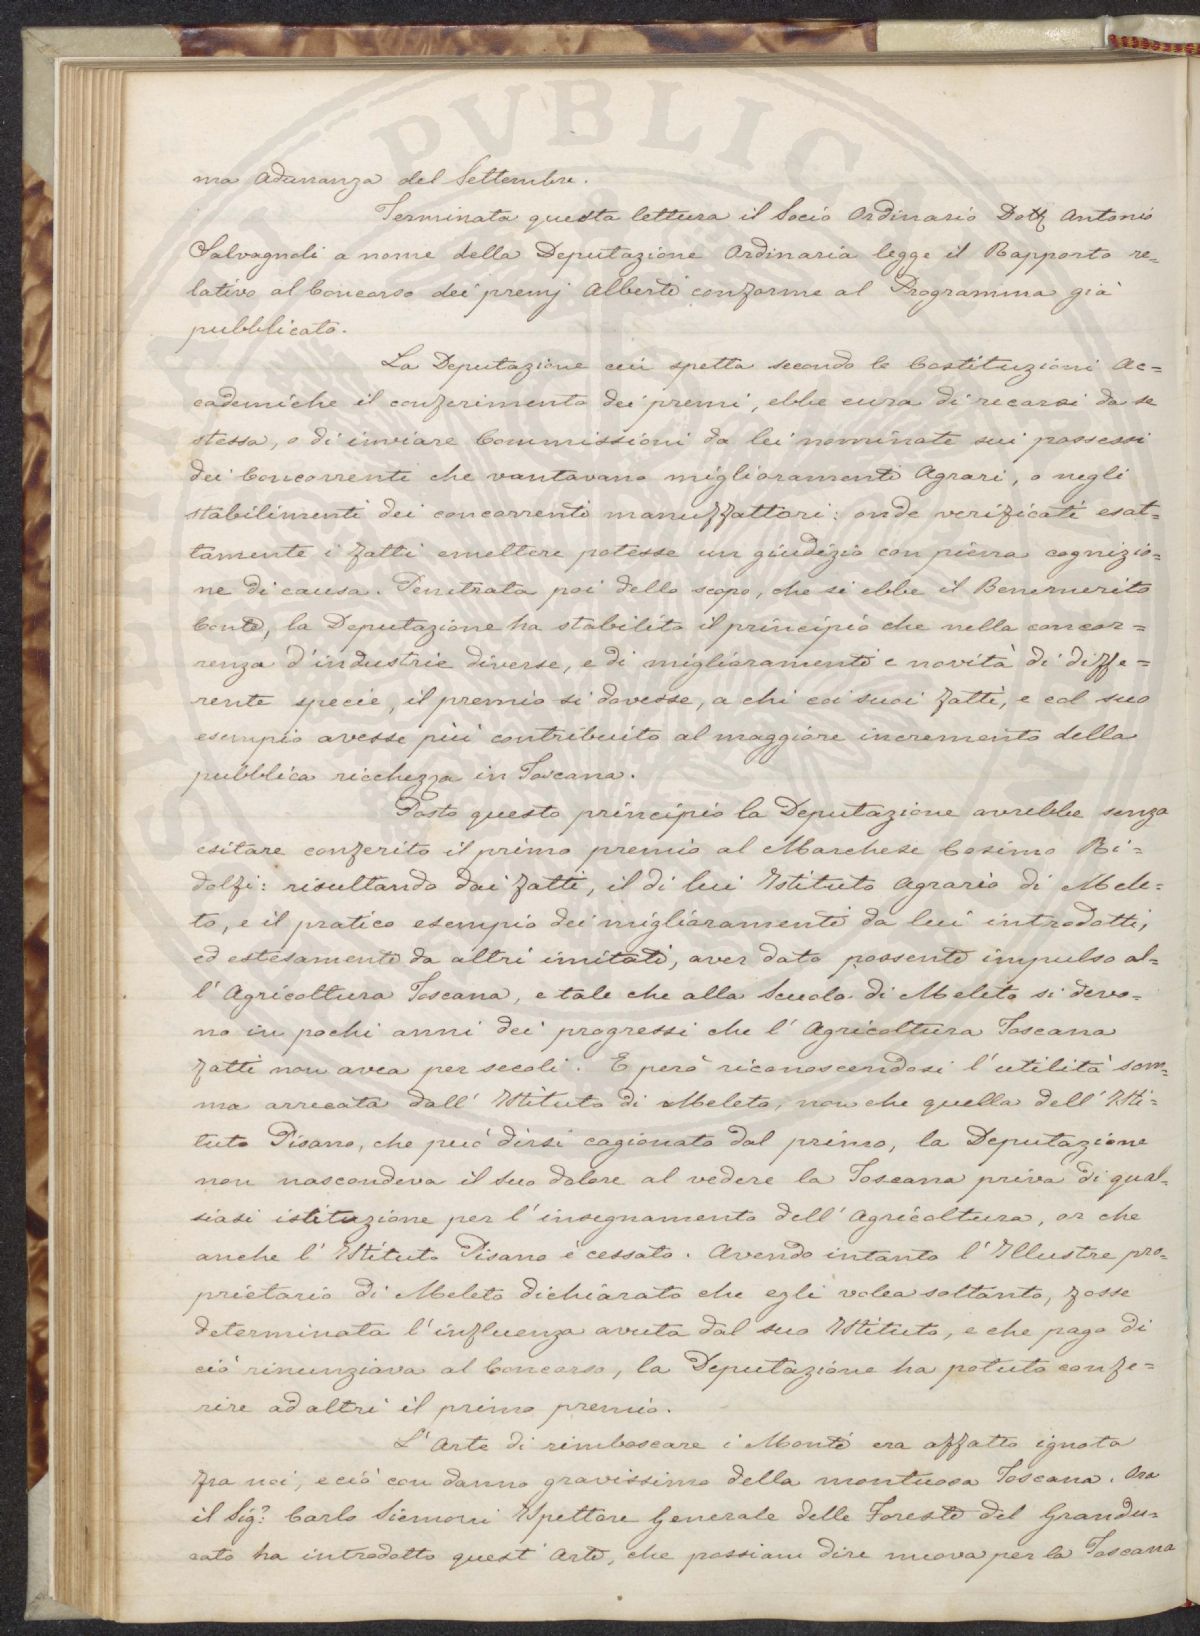 ma Adunanza del Settembre.
Terminata questa lettura il Socio Ordinario Dott Antonio
Salvagnoli a nome della Deputazione Ordinaria legge il Rapporto re-
lativo al Concorso dei premj Alberti conforme al Programma già
pubblicato.
La Deputazione cui spetta secondo le Costituzioni Ac-
cademiche il conferimento dei premi, ebbe cura di recarsi da se
stessa, o di inviare Commissioni da lei nominate sui possessi
dei Concorrenti che vantavano miglioramenti Agrari, o negli
stabilimenti dei concorrenti manuffattori: onde verificati esat-
tamente i fatti emettere potesse un giudizio con piena cognizio-
ne di causa. Penetrata poi dello scopo, che si ebbe il Benemerito
Conte, la Deputazione ha stabilito il principio che nella concor-
renza d'industrie diverse, e di miglioramenti e novità di diffe-
rente specie, il premio si dovesse, a chi coi suoi fatti, e col suo
esempio avesse più contribuito al maggiore incremento della
pubblica ricchezza in Toscana.
Posto questo principio la Deputazione avrebbe senza
esitare conferito il primo premio al Marchese Cosimo Ri-
dolfi: risultando dai fatti, il di lui Istituto Agrario di Mele-
to, e il pratico esempio dei miglioramenti da lui introdotti,
ed estesamente da altri imitati, aver dato possente impulso al-
l'Agricoltura Toscana, e tale che alla Scuola di Meleto si devo-
no in pochi anni dei progressi che l'Agricoltura Toscana
fatti non avea per secoli. E però riconoscendosi l'utilità som-
ma arrecata dall'Istituto di Meleto, non che quella dell'Isti-
tuto Pisano, che può dirsi cagionato dal primo, la Deputazione
non nascondeva il suo dolore al vedere la Toscana priva di qual-
siasi istituzione per l'insegnamento dell'Agricoltura, or che
anche l'Istituto Pisano è cessato. Avendo intanto l'Illustre pro-
prietario di Meleto dichiarato che egli volea soltanto, fosse
determinata l'influenza avuta dal suo Istituto, e che pago di
ciò rinunziava al Concorso, la Deputazione ha potuto confe-
rire ad altri il primo premio.
L'Arte di rimboscare i Monti era affatto ignota
fra noi, e ciò con danno gravissimo della montuosa Toscana. Ora
il Sig.r Carlo Siemoni Ispettore Generale delle Foreste del Grandu-
cato ha introdotto quest'Arte, che possiam dire nuova per la Toscana
SPQR PVBLIC